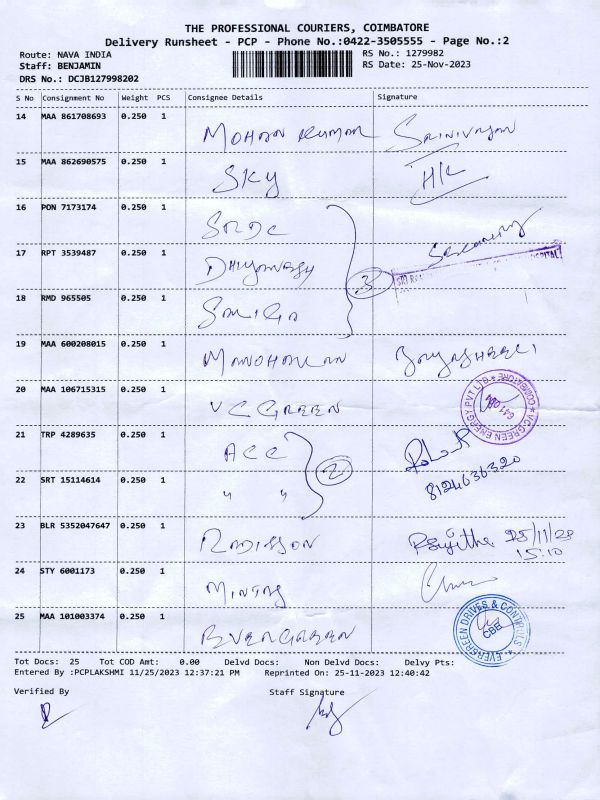 THE PROFESSIONAL COURIERS, COIMBATORE
Delivery Runsheet - PCP - Phone No.:0422-3505555 - Page No.:2
Route: NAVA INDIA RS No.: 1279982
Staff: BENJAMIN RS Date: 25-Nov-2023
DRS No.: DCJB127998202
S No Consignment No Weight PCS Consignee Details Signature
14 MAA 861708693 0.250 1 MOHAN KUMAR SRINIVASAN
15 MAA 862690575 0.250 1 SKY H/K
16 PON 7173174 0.250 1
17 RPT 3539487 0.250 1 3 HOSPITAL
18 RMD 965505 0.250 1
19 MAA 600208015 0.250 1 MANOHARAN JAYASHREE
20 MAA 106715315 0.250 1 VC GREEN V.C.GREEN ENERGY PVT LTD COIMBATORE
21 TRP 4289635 0.250 1 ACC 2
22 SRT 15114614 0.250 1 " " 8124636320
23 BLR 5352047647 0.250 1 RADISSON 25/11/23
15:10
24 STY 6001173 0.250 1
25 MAA 101003374 0.250 1 EVERGREEN EVERGREEN DRIVES & CONTROLS CBE
Tot Docs: 25 Tot COD Amt: 0.00 Delvd Docs: Non Delvd Docs: Delvy Pts:
Entered By :PCPLAKSHMI 11/25/2023 12:37:21 PM Reprinted On: 25-11-2023 12:40:42
Verified By Staff Signature